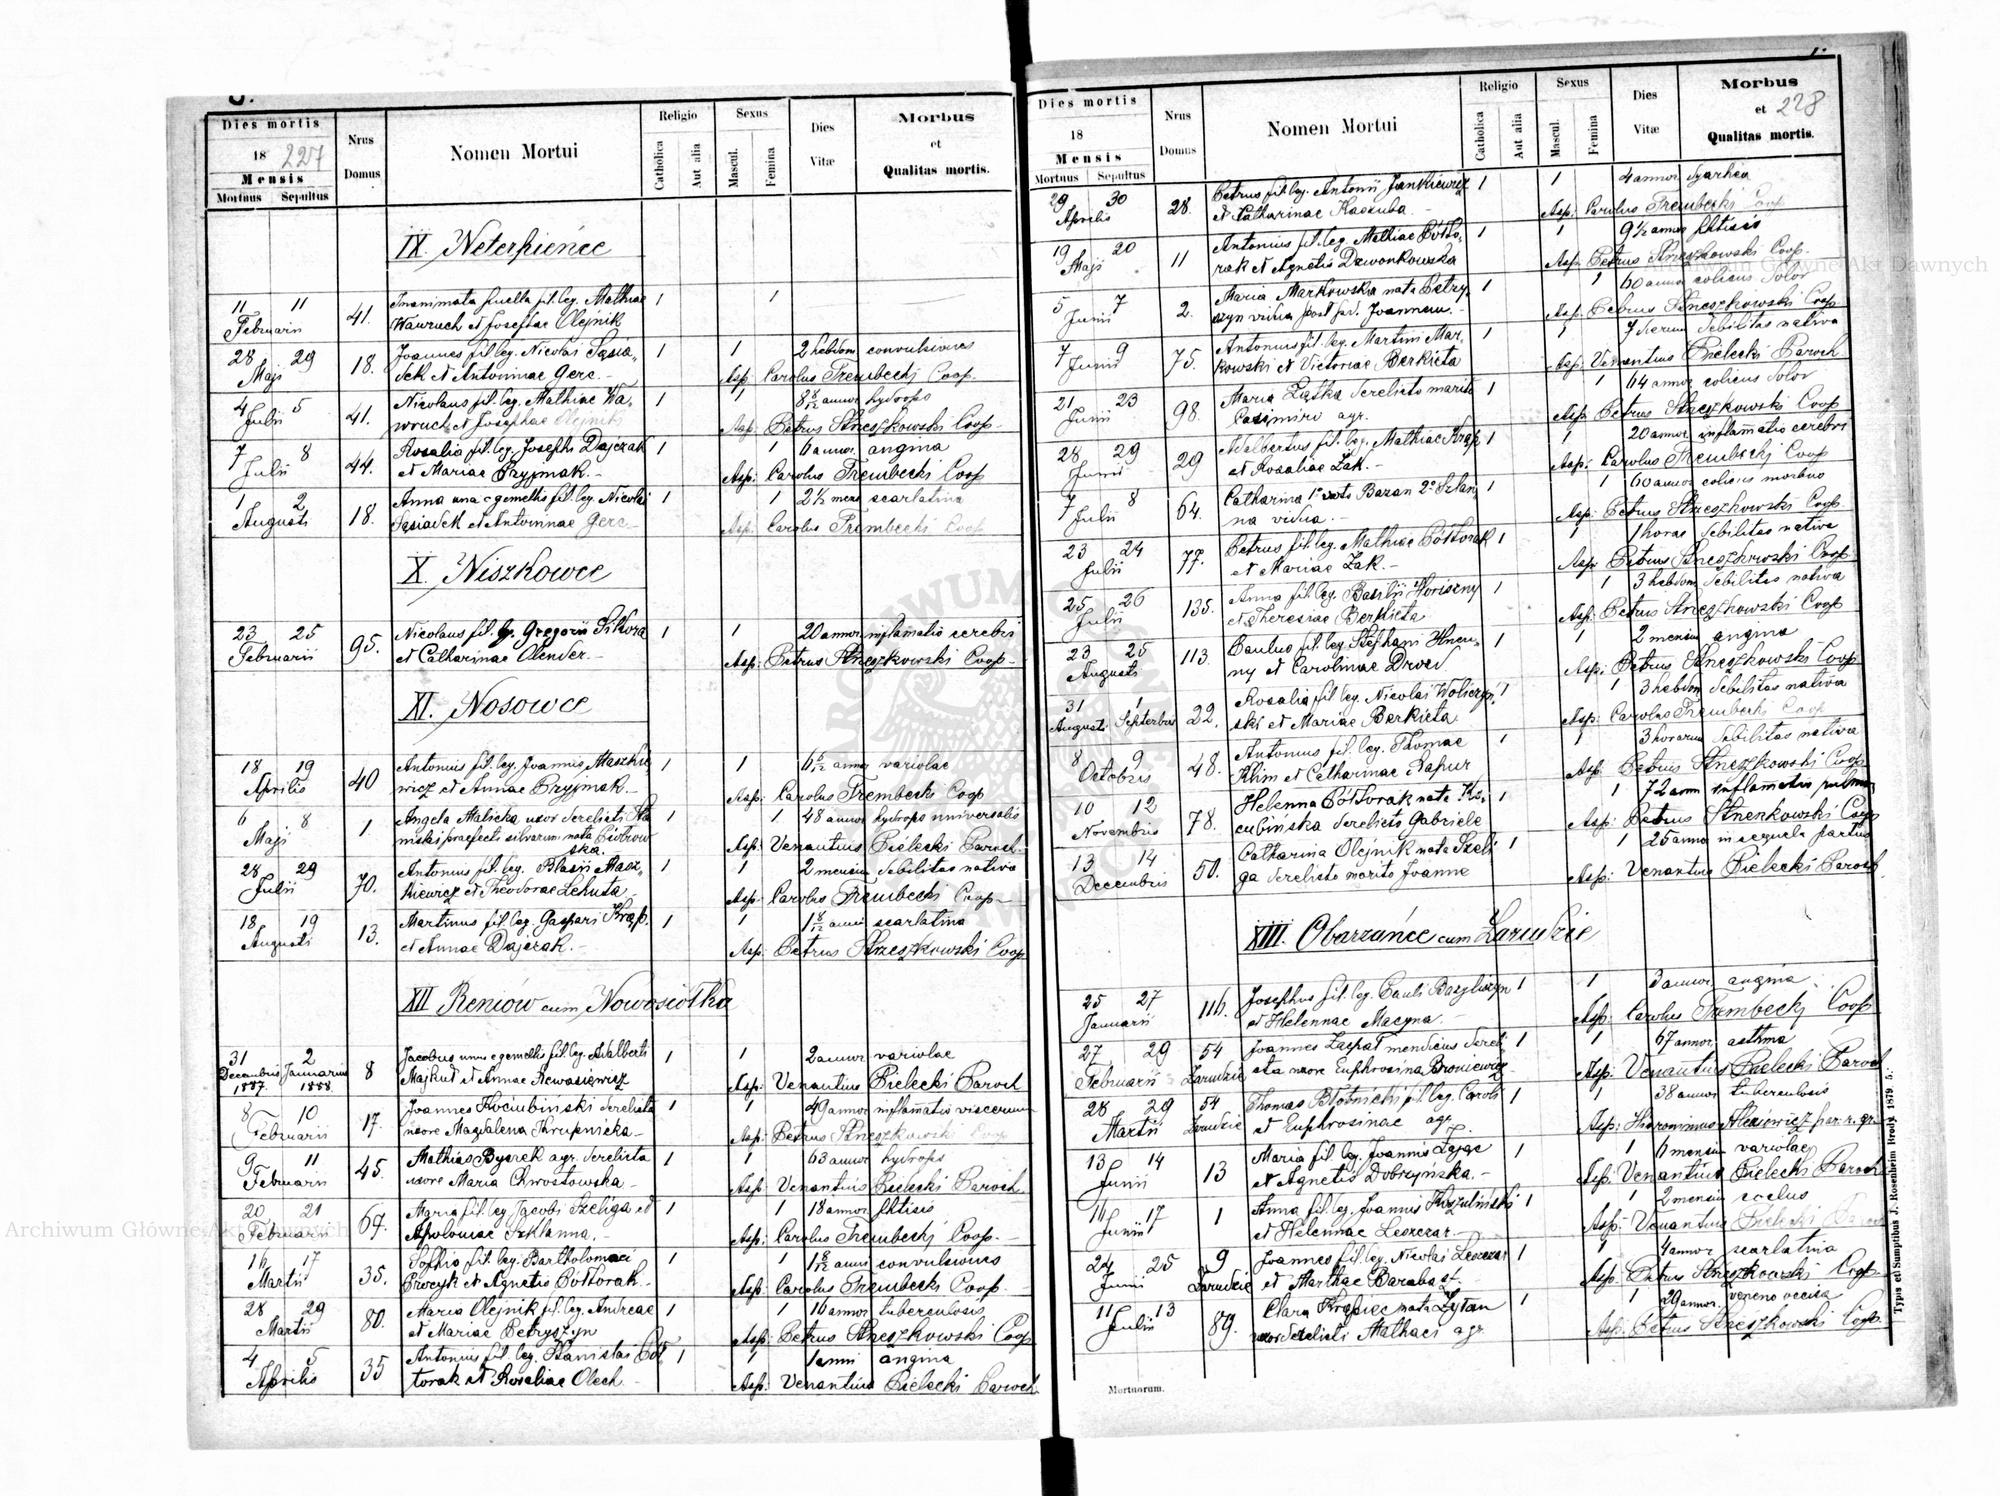 Dies mortis
18 227
Mensis
Mortuus Sepultus
Nrus
Domus
Nomen Mortui
Religio
Catholica
Aut alia
Sexus
Mascul.
Femina
Dies
Vitæ
Morbus
et
Qualitas mortis.
IX. Neterpieńce
11 11 41. Inanimata puella fil. leg. Mathiae 1 1
Februarii Wawruch et Josephae Olejnik
28 29 18. Joannes fil. leg. Nicolai Sąsia- 1 1 2 hebdom convulsiones
Maji dek et Antoninae Gerc. Asp: Carolus Trembecki Coop.
4 5 41. Nicolaus fil. leg. Mathiae Wa- 1 1 8 8/12 annor hydrops
Julii wruch et Josephae Olejnik Asp: Petrus Streszkowski Coop.
7 8 44. Rosalia fil. leg. Josephi Dajczak 1 1 6 annor. angina
Julii et Mariae Pryjmak. Asp: Carolus Trembecki Coop
1 2 18. Anna una e gemellis fil. leg. Nicolai 1 1 2 1/2 mens scarlatina
Augusti Sąsiadek et Antoninae Gerc Asp: Carolus Trembecki Coop
X. Niszkowce
23 25 95. Nicolaus fil. leg. Gregorii Sikora 1 1 20 annor inflamatio cerebri
Februarii et Catharinae Olender. Asp: Petrus Streszkowski Coop
XI. Nosowce
18 19 40 Antonius fil. leg. Joannis Maszkie- 1 1 6 6/12 annor variolae
Aprilis wicz et Annae Pryjmak. Asp: Carolus Trembecki Coop
6 8 1 Angela Malicka uxor derelicti 1 1 48 annor hydrops universalis
Maji praefecti silvarum nata Piotrow Asp: Venantius Pielecki Paroch.
ska
28 29 70. Antonius fil. leg. Blasii Masz- 1 1 2 mensium debilitas nativa
Julii kiewicz et Theodorae Lehuta Asp: Carolus Trembecki Coop
18 19 13. Martinus fil. leg. Gaspari Krąp. 1 1 1 8/12 anni scarlatina
Augusti et Annae Dajczak. Asp: Petrus Streszkowski Coop
XII Reniów cum Nowosiółka
31 2 8 Jacobus unus e gemellis fil. leg. Adalberti 1 1 2 annor variolae
Decembris Januarius Majkut et Annae Rewasiewicz Asp: Venantius Pielecki Paroch
1887. 1888.
8 10 17. Joannes Kociubiński derelicta 1 1 49 annor inflamatio viscerum
Februarii uxore Magdalena Krupnicka Asp: Petrus Streszkowski Coop
9 11 45. Mathias Bycrek agr. derelicta 1 1 63 annor hydrops
Februarii uxore Maria Chrostowska Asp: Venantius Pielecki Paroch.
20 21 67. Maria fil. leg. Jacobi Szeliga et 1 1 18 annor phtisis
Februarii Apoloniae Szklanna. Asp: Carolus Trembecki Coop.
16 17 35. Sophia fil. leg. Bartholomaei 1 1 1 8/12 anni convulsiones
Martii et Agnetis Półtorak. Asp: Carolus Trembecki Coop.
28 29 80. Maria Olejnik fil. leg. Andreae 1 1 16 annor tuberculosis
Martii et Mariae Petryszyn Asp: Petrus Streszkowski Coop
4 5 35 Antonius fil. leg. Stanislai Pół 1 1 1 anni angina
Aprilis torak et Rosaliae Olech. Asp: Venantius Pielecki Paroch
Dies mortis
18
Mensis
Mortuus Sepultus
Nrus
Domus
Nomen Mortui
Religio
Catholica
Aut alia
Sexus
Mascul.
Femina
Dies
Vitæ
Morbus
et 228
Qualitas mortis.
29 30 28. Petrus fil. leg. Antonii Jankiewicz 1 1 4 annor dyarhea
Aprilis et Catharinae Kaszuba. Asp: Carolus Trembecki Coop
19 20 11 Antonius fil. leg. Mathiae Półto- 1 1 9 1/2 annor phtisis
Maji rak et Agnetis Dzwonkowska Asp: Petrus Streszkowski Coop.
5 7 2. Maria Markowska nata Petry- 1 1 60 annor colicus dolor
Junii szyn vidua post def. Joannem. Asp: Petrus Streszkowski Coop
7 9 75. Antonius fil. leg. Martini Mar- 1 1 7 dierum debilitas nativa
Junii kowski et Victoriae Berkieta Asp: Venantius Pielecki Paroch
21 23 98. Maria Ziątka derelicto marito 1 1 64 annor colicus dolor
Junii Casimiro agr. Asp: Petrus Streszkowski Coop
28 29 29 Adalbertus fil. leg. Mathiae Krąp 1 1 20 annor inflamatio cerebri
Junii et Rosaliae Żak. Asp: Carolus Trembecki Coop
7 8 64. Catharina 1º voto Bazan 2º Szklan 1 1 60 annor colicus morbus
Julii na vidua. Asp: Petrus Streszkowski Coop
23 24 77. Petrus fil. leg. Mathiae Półtorak 1 1 1 horae debilitas nativa
Julii et Mariae Żak. Asp: Petrus Streszkowski Coop
25 26 135. Anna fil. leg. Basilii Horiszny 1 1 3 hebdom debilitas nativa
Julii et Theresiae Berkieta Asp: Petrus Streszkowski Coop
23 25 113. Paulus fil. leg. Stephani Hneu- 1 1 2 mensium angina
Augusti ny et Carolinae Drozd Asp: Petrus Streszkowski Coop
31 1 22. Rosalia fil. leg. Nicolai Woliczyń- 1 1 3 hebdom debilitas nativa
Augusti Septembris ski et Mariae Berkieta Asp: Carolus Trembecki Coop
8 9 48. Antonius fil. leg. Thomae 1 1 3 horarum debilitas nativa
Octobris Klim et Catharinae Rapur Asp: Petrus Streszkowski Coop
10 12 78. Helenna Półtorak nata Ko- 1 1 72 ann inflamatio pulmon
Novembris cubińska derelicto Gabriele Asp: Petrus Strenkowski Coop
13 14 50. Catharina Olejnik nata Szeli 1 1 25 annor in sequela partus
Decembris ga derelicto marito Joanne Asp: Venantius Pielecki Paroch
XIII. Obarzańce cum Zarudzie
25 27 116. Josephus fil. leg. Pauli Bazyliszyn 1 1 3 annor angina
Januarii et Helennae Macyna. Asp: Carolus Trembecki Coop
27 29 54 Joannes Laspat mendicus dereli- 1 1 67 annor. asthma
Februarii Zarudzie cta uxore Euphrosina Broniewicz Asp: Venantius Pielecki Paroch
28 29 54 Thomas Błotnicki fil. leg. Caroli 1 1 38 annor tuberculosis
Martii Zarudzie et Euphrosinae agr. Asp: Hieronimus
13 14 13 Maria fil. leg. Joannis Zając 1 1 6 mensium variolae
Junii et Agnetis Dobrzyńska. Asp: Venantius Pielecki Paroch
16 17 1 Anna fil. leg. Joannis Koszuliński 1 1 2 mensium
Junii et Helennae Leszczar. Asp: Venantius Pielecki Paroch
24 25 9 Joannes fil. leg. Nicolai Leszczar 1 1 4 annor scarlatina
Junii Zarudzie et Marthae Baraba Asp: Petrus Streszkowski Coop
11 13 89. Clara Krąpiec nata Zytan 1 1 29 annor. veneno occisa
Julii uxor derelicti Mathaei agr. Asp: Petrus Streszkowski Coop
Mortuorum.
Typis et Sumptibus J. Rosenheim Brody 1879. 5.
Archiwum Główne Akt Dawnych
Archiwum Główne Akt Dawnych